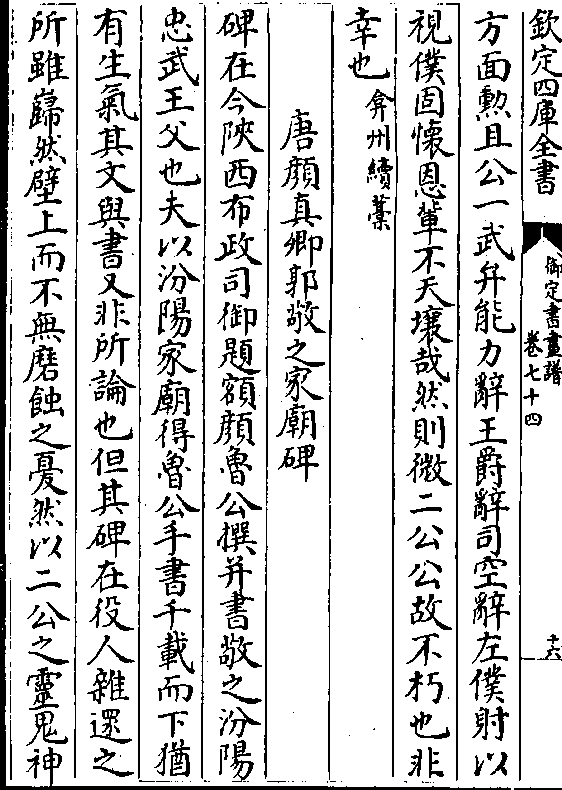 欽定四庫全書
御定書畫譜
卷七十四
十六
方面勲且公一武弁能力辭王爵辭司空辭左僕射以
視僕固懷恩輩不天壤哉然則微二公公故不朽也非
幸也弇州續藁
唐顔真卿郭敬之家廟碑
碑在今陜西布政司御題額顔魯公撰并書敬之汾陽
忠武王父也夫以汾陽家廟得魯公手書千載而下猶
有生氣其文與書又非所論也但其碑在役人雜遝之
所雖巋然壁上而不無磨蝕之憂然以二公之靈鬼神